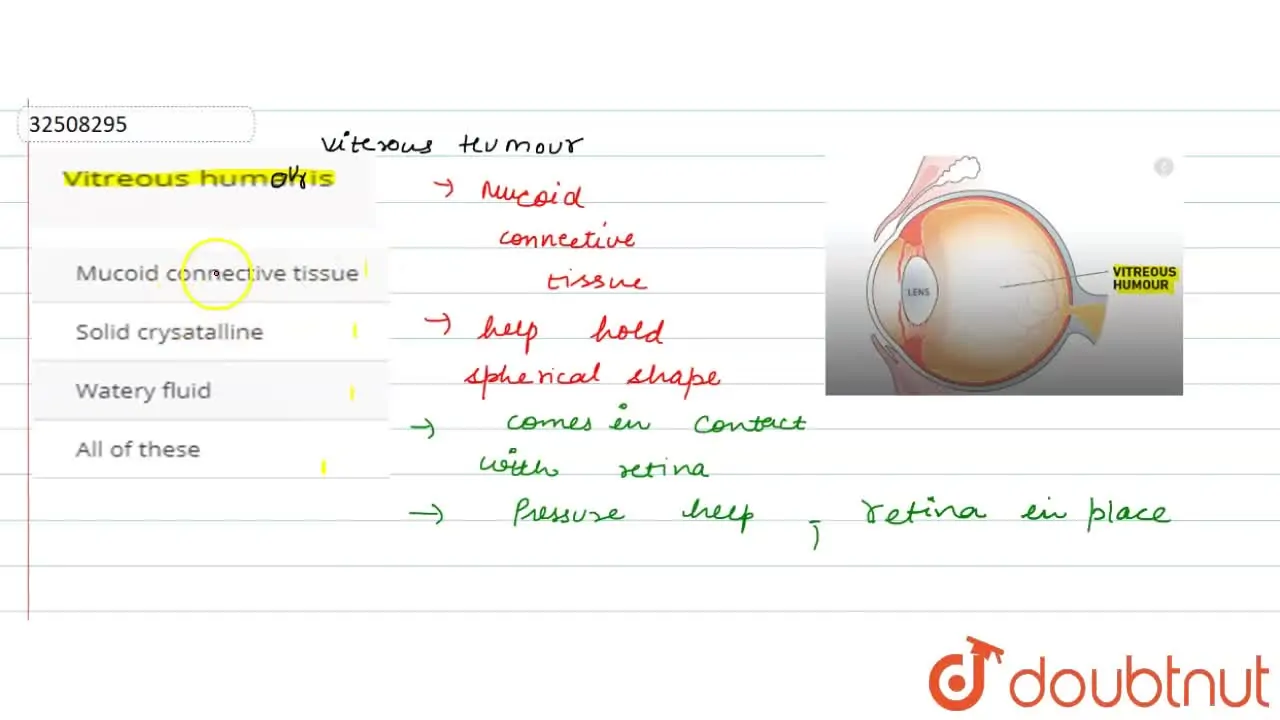 32508295
viterous Humour
Vitreous humour is
Mucoid connective tissue
Solid crysatalline
Watery fluid
All of these
→ Mucoid
connective
tissue
→ help hold
spherical shape
→ comes in contact
with retina
→ Pressure help retina in place
LENS
VITREOUS
HUMOUR
doubtnut